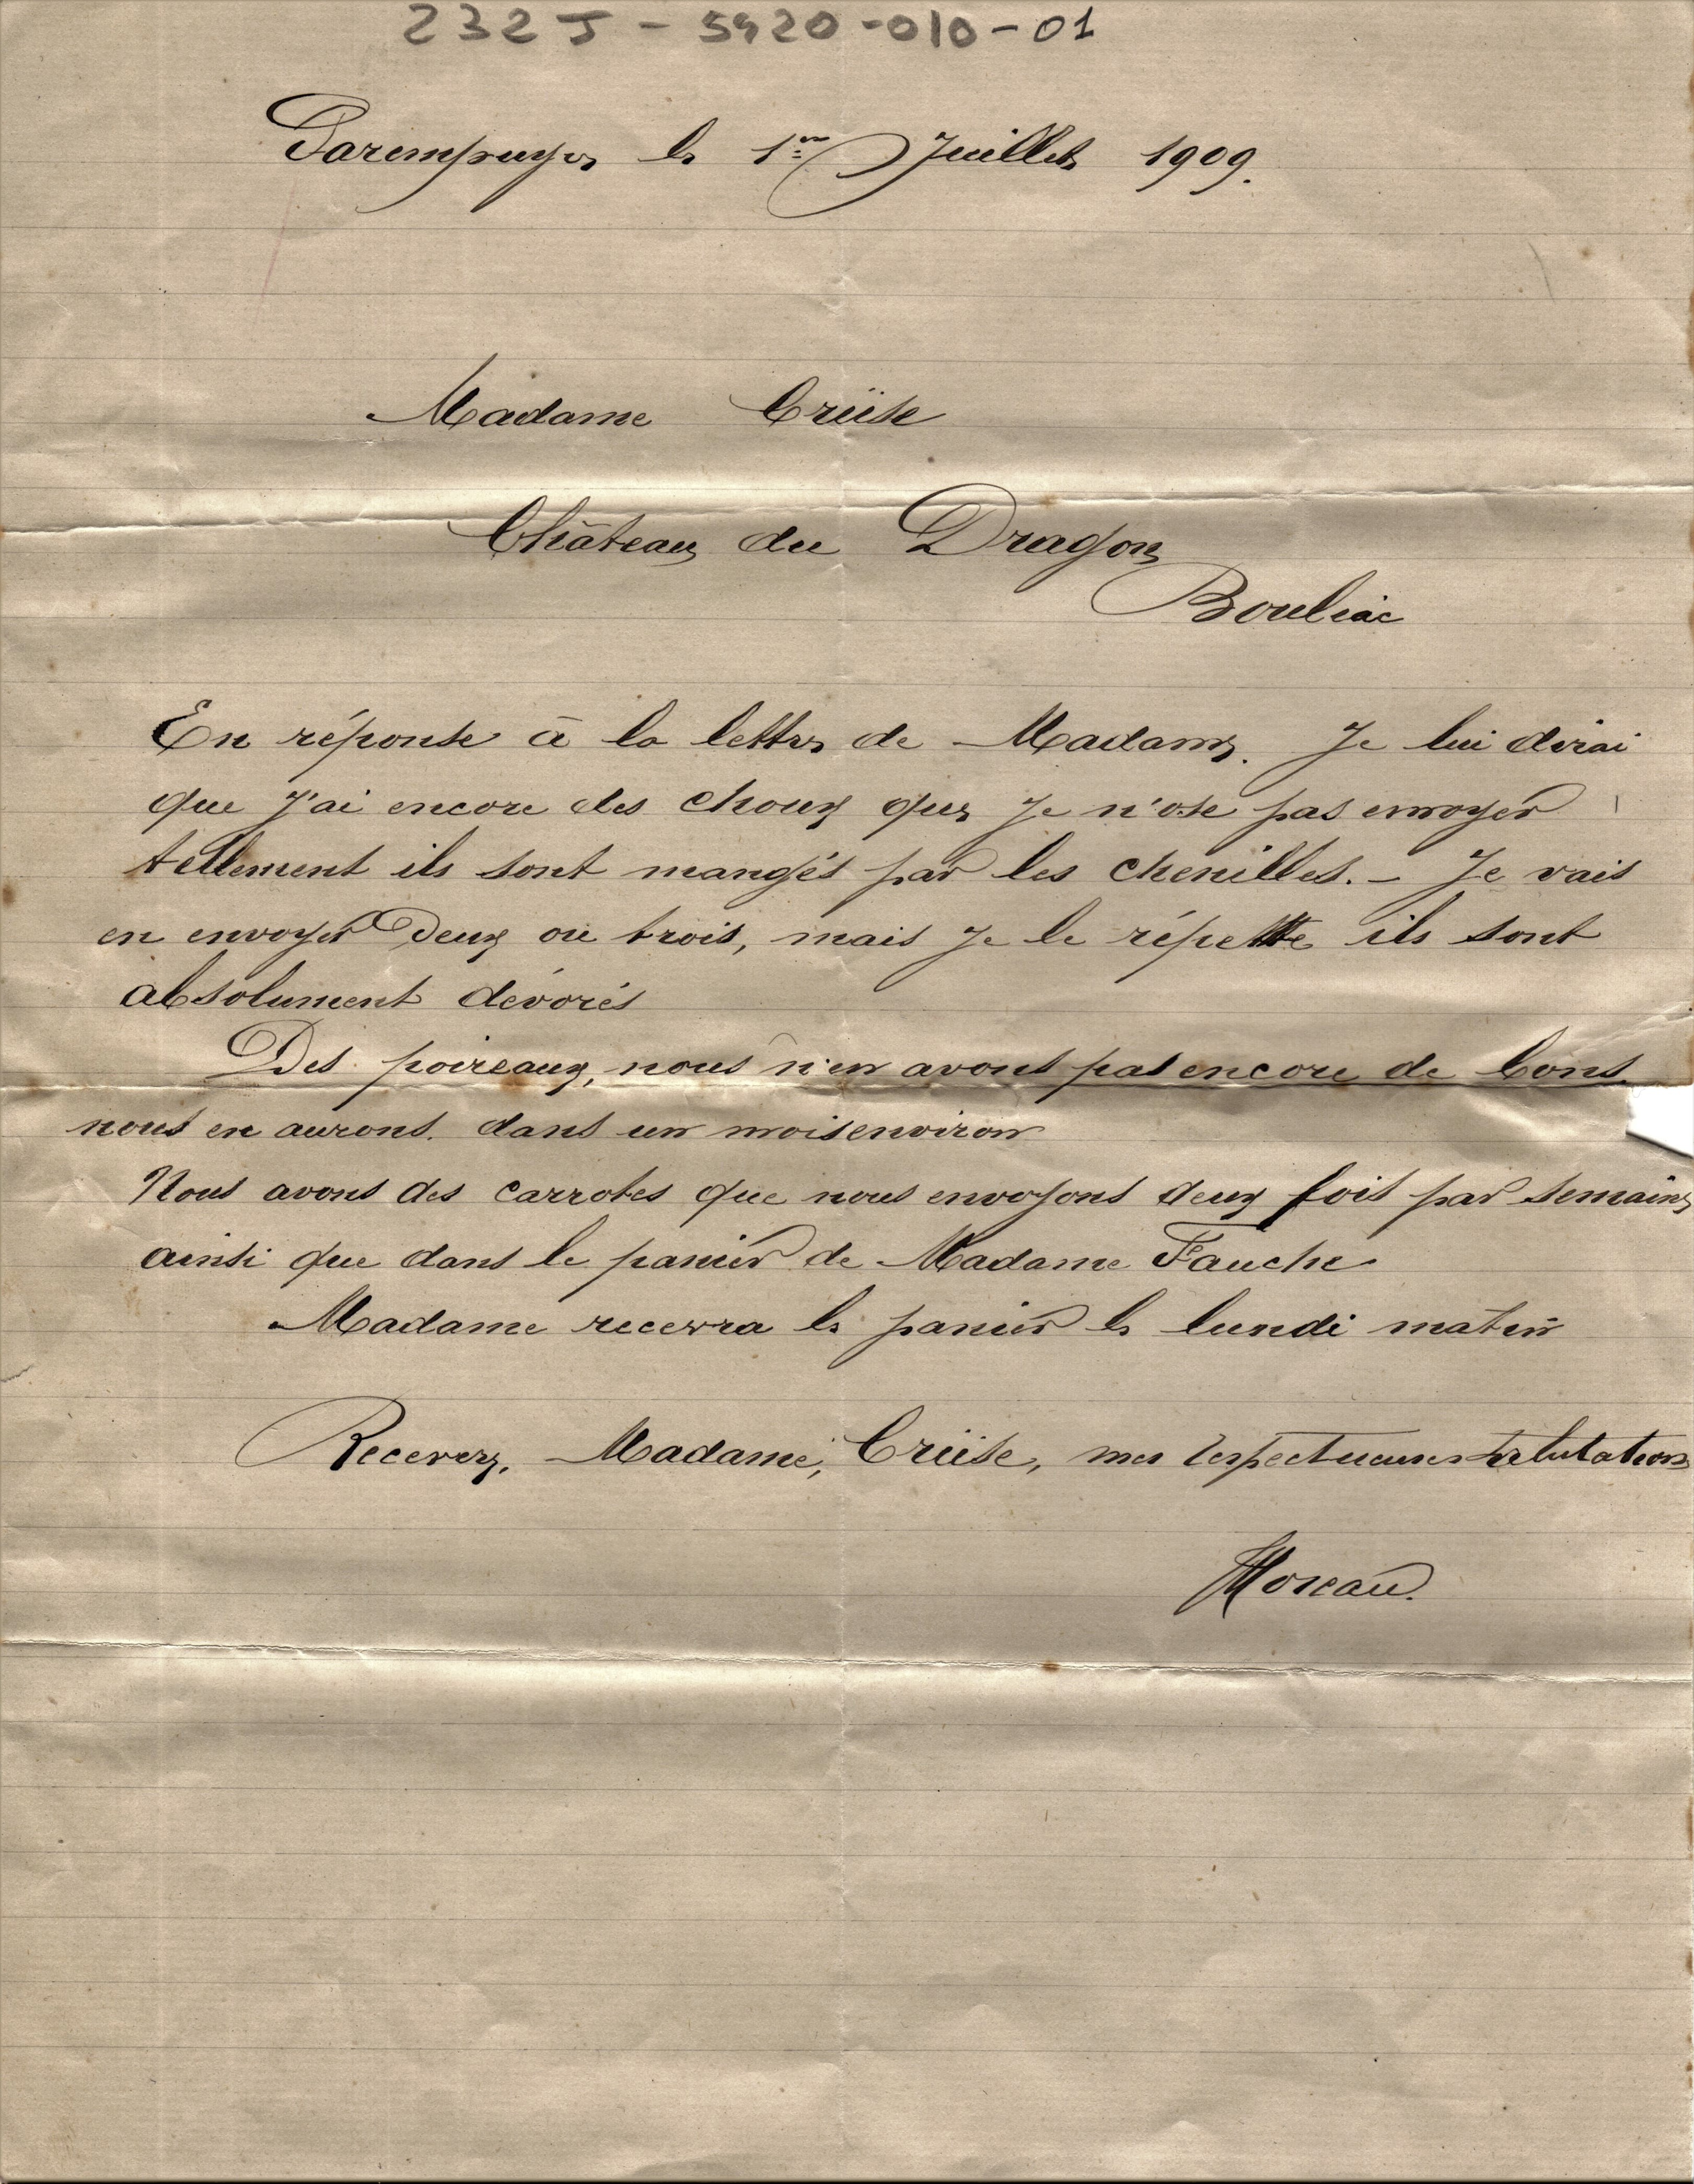 232 J - 5920-010-01
Parempuyre le 1er Juillet 1909.
Madame Crüse
Château du Dragon
Bouliac
En réponse à la lettre de Madame. Je lui dirai
que j'ai encore des choux que je n'ose pas envoyer
tellement ils sont mangés par les chenilles. - Je vais
en envoyer deux ou trois, mais je le répette ils sont
absolument dévorés
Des poireaux, nous n'en avons pas encore de bons.
nous en aurons. dans un mois environ
Nous avons des carrotes que nous envoyons deux fois par semaine
ainsi que dans le panier de Madame Fauche
Madame recevra le panier le lundi matin
Recevez, Madame, Crüse, mes respectueuses salutations
Moreau.